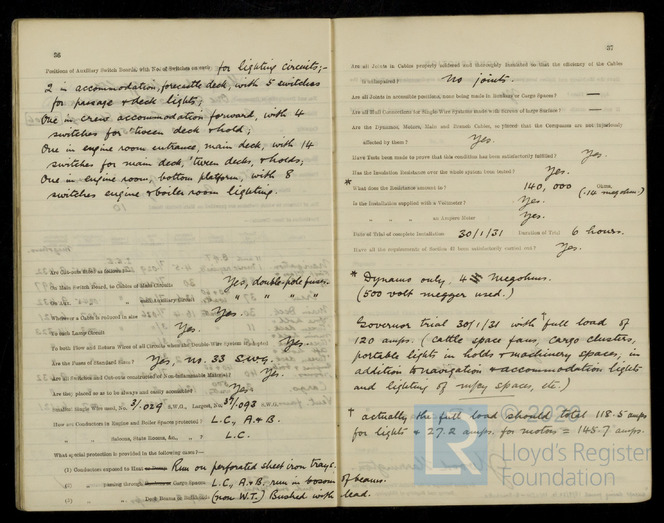 36
Positions of Auxiliary Switch Boards, with No. of Switches on each for lighting circuits;-
2 in accommodation, forecastle deck, with 5 switches
for passage & deck lights;
One in crew accommodation forward, with 4
switches for 'tween deck & hold;
One in engine room entrance, main deck, with 14
switches for main deck, 'tween decks, & holds;
One in engine room, bottom platform, with 8
switches engine & boiler room lighting.
Are Cut-outs fitted as follows?—
On Main Switch Board, to Cables of Main Circuits Yes, double-pole fuses.
On Aux. " " each Auxiliary Circuit " " " "
Wherever a Cable is reduced in size Yes.
To each Lamp Circuit Yes.
To both Flow and Return Wires of all Circuits when the Double-Wire System is adopted Yes.
Are the Fuses of Standard Sizes? Yes, no. 33 S.W.G.
Are all Switches and Cut-outs constructed of Non-inflammable Material? Yes.
Are they placed so as to be always and easily accessible? Yes.
Smallest Single Wire used, No. 3/.029 S.W.G., Largest, No. 37/.093 S.W.G.
How are Conductors in Engine and Boiler Spaces protected? L.C., A. & B.
" " Saloons, State Rooms, &c., " ? L.C.
What special protection is provided in the following cases?—
(1) Conductors exposed to Heat Run on perforated sheet iron trays.
(2) " passing through Cargo Spaces L.C., A & B, run in bosom of beams.
(3) " " Deck Beams or Bulkheads (non W.T.) Bushed with lead.
37
Are all Joints in Cables properly soldered and thoroughly insulated so that the efficiency of the Cables
is unimpaired? No joints.
Are all Joints in accessible positions, none being made in Bunkers or Cargo Spaces? —
Are all Hull Connections for Single Wire Systems made with Screws of large Surface? —
Are the Dynamos, Motors, Main and Branch Cables, so placed that the Compasses are not injuriously
affected by them? Yes.
Have Tests been made to prove that this condition has been satisfactorily fulfilled? Yes.
Has the Insulation Resistance over the whole system been tested? Yes.
* What does the Resistance amount to? 140,000 Ohms. (.14 megohm.)
Is the Installation supplied with a Voltmeter? Yes.
" " " an Ampere Meter Yes.
Date of Trial of complete Installation 30/1/31 Duration of Trial 6 hours.
Have all the requirements of Section 42 been satisfactorily carried out? Yes.
* Dynamo only, 4 megohms.
(500 volt megger used.)
Governor trial 30/1/31 with † full load of
120 amps. (cattle space fans, cargo clusters,
portable lights in holds & machinery spaces, in
addition to navigation & accommodation lights
and lighting of spaces, etc.)
† actually the full load should total 118.5 amps
for lights & 27.2 amps. for motors = 145.7 amps.
© 2020
LR Lloyd's Register
Foundation